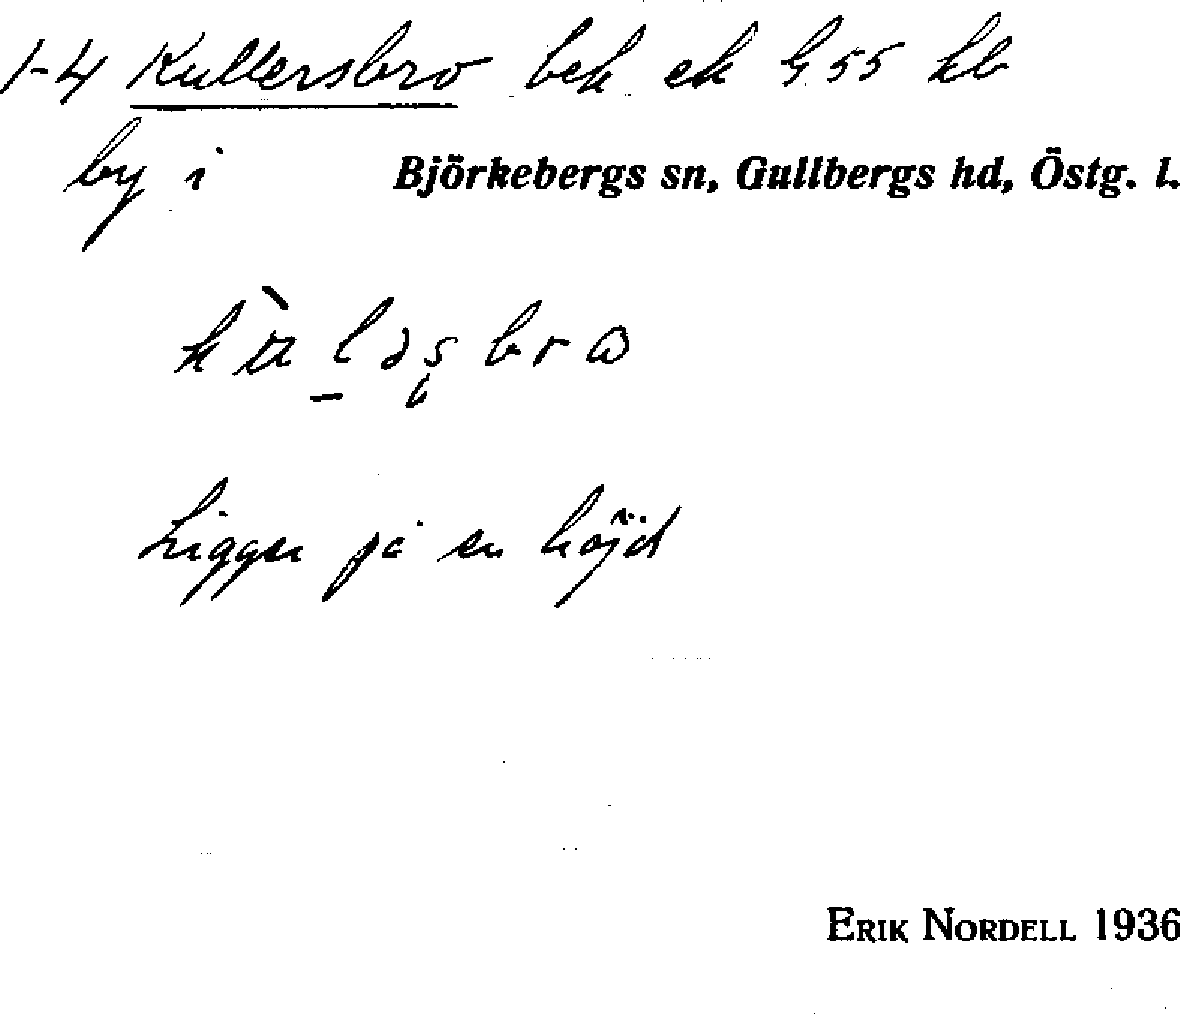 1-4 Kullersbro bek ek G 55 kb
by i Björkebergs sn, Gullbergs hd, Östg. l.
Ligger på en höjd
ERIK NORDELL 1936